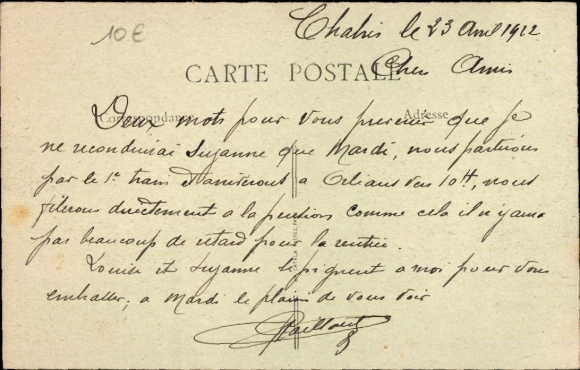 10€
Chabris le 23 Avril 1912
CARTE POSTALE
Chers Amis
Correspondance
Adresse
Deux mots pour vous prevenir que je
ne reconduirai Suzanne que Mardi, nous partirons
par le 1er train et arriveront a Orléans vers 10H, nous
filerons directement a la pension comme cela il n'y aura
pas beaucoup de retard pour la rentrée.
Louise et Suzanne se joignent a moi pour vous
embrasser, a Mardi le plaisir de vous voir